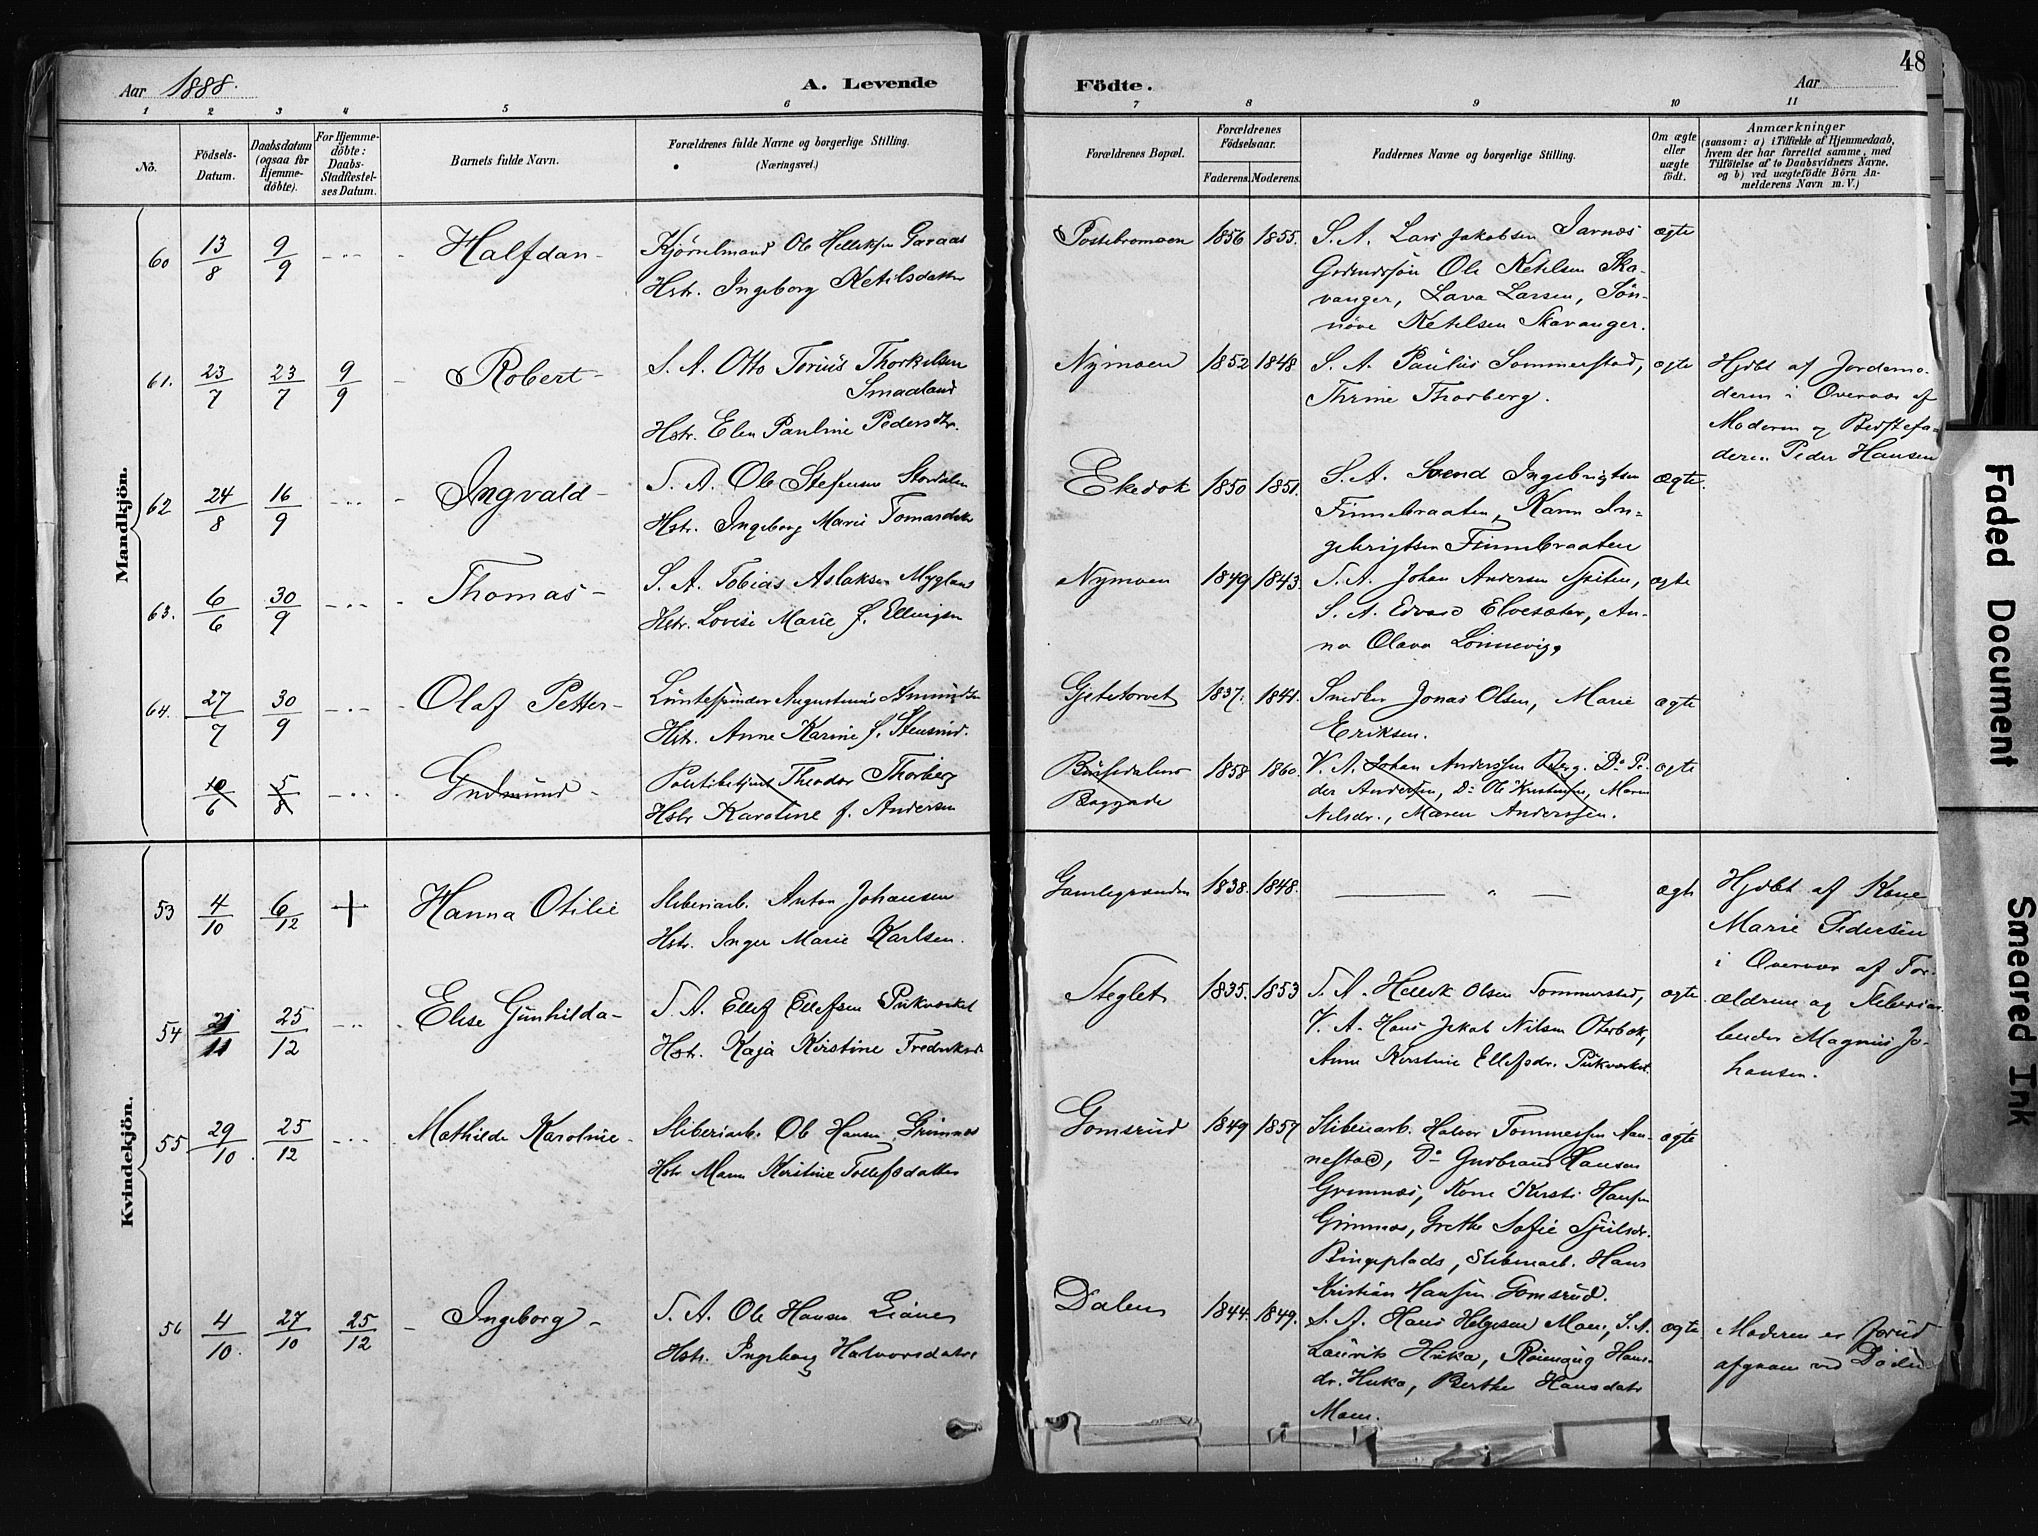 Aar 1888.
A. Levende
Födte.
Aar
48
1 2 3 4 5 6 7 8 9 10 11
No.
Födsels-Datum.
Daabsdatum (ogsaa for Hjemme-döbte).
For Hjemme-döbte: Daabs-Stadfæstel-ses Datum.
Barnets fulde Navn.
Forældrenes fulde Navne og borgerlige Stilling.
(Næringsvei.)
Forældrenes Bopæl.
Forældrenes Födselsaar.
Faderens. Moderens.
Faddernes Navne og borgerlige Stilling.
Om ægte eller uægte født.
Anmærkninger
(saasom: a) i Tilfælde af Hjemmedaab,
hvem der har forrettet samme, med
Tilföielse af to Daabsvidners Navne.
og b) ved uægtefödte Börn An-
melderens Navn m. V.)
Mandkjön.
60 13/8 9/9 Halfdan
Kjörselmand Ole Helleksen Garaas
Hstr. Ingeborg Ketilsdatter
1856 1855.
S. A. Lars Jakobsen Jarnæs
Ole Ketilsen Ska-
vanger, Lava Larsen, Sön-
növe Ketelsen Skavanger.
ægte
61. 23/7 23/7 9/9 Robert
S. A. Otto Thorkelsen
Smaaland
Hstr. Elen Pauline Pedersdtr.
Nymoen 1852 1848
S. A. Paulus Sommerstad,
Thrine Thorberg.
ægte
Hjdbt af Jordemo-
deren i Overvær af
Moderen og Bedstefa-
deren Peder Hansen
62 24/8 16/9 Ingvald
S. A. Ole Stefensen Stordalen
Hstr. Ingeborg Marie Tomasdatter
Ekedok 1850 1851.
S. A. Svend Ingebrigtsen
Finnebraaten, Karen In-
gebrigtsen Finnebraaten
ægte.
63. 6/6 30/9 Thomas
S. A. Tobias Aslaksen Mygland
Hstr. Lovise Marie f. Ellingsen
Nymoen 1849 1843.
S. A. Johan Andersen
S. A. Edvard Elvesæter, An-
na Olava Lönnevig,
ægte
64. 27/7 30/9 Olaf Petter
Augustinus Amundsen
Hstr. Anne Karine f. Stensrud.
Gjetetorvet 1837. 1841.
Snedker Jonas Olsen, Marie
Eriksen.
ægte
10/6 5/8 Gudmund
Politibetjent Theodor Thorberg
Hstr. Karoline f. Andersen
Baggade
1858 1860.
V. A. Johan Anderssen Berg. Do Pe-
der Andersen, Do Ole Kristensen, Maren
Nilsdr., Maren Anderssen.
ægte
Kvindekjön.
53 4/10 6/12 + Hanna Otilie
Sliberiarb. Anton Johansen
Hstr. Inger Marie Karlsen.
Gamlegrenden 1838. 1848.
ægte
Hjdbt af Kone
Marie Pedersen
i Overvær af For-
ældrene og Sliberiar-
beider Magnus Jo-
hansen.
54 21/11 25/12 Elise Gunhilda
S. A. Ellef Ellefsen Pukværket
Hstr. Kaja Kirstine Fredriksd.
Steglet 1835. 1853
S. A. Hellek Olsen Sommerstad,
V. A. Hans Jakob Nilsen Oterbæk,
Anne Kirstine Ellefsdr. Pukværket.
ægte
55 29/10. 25/12 Mathilde Karoline
Sliberiarb. Ole Hansen Grimnæs
Hstr. Maren Kirstine Tollefsdatter
Gomsrud 1849 1857
Sliberiarb. Halvor Tommessen Nan-
nestad, Do Gudbrand Hansen
Grimnæs, Kone Kirsti Hansen
Grimnæs, Grethe Sofie
Bingeplads, Sliberiarb. Hans
Kristian Hansen Gomsrud.
ægte
56 4/10. 27/10 25/12 Ingeborg
S. A. Ole Hansen Lianes
Hstr. Ingeborg Halvorsdatter
Dalen 1844. 1849.
S. A. Hans Helgesen Moen, S. A.
Laurits Huka, Rönnaug Hans-
dr. Huka, Berthe Hansdatr
Moen.
ægte
Moderen er forud
afgaaet ved Döden
Faded Document
Smeared Ink